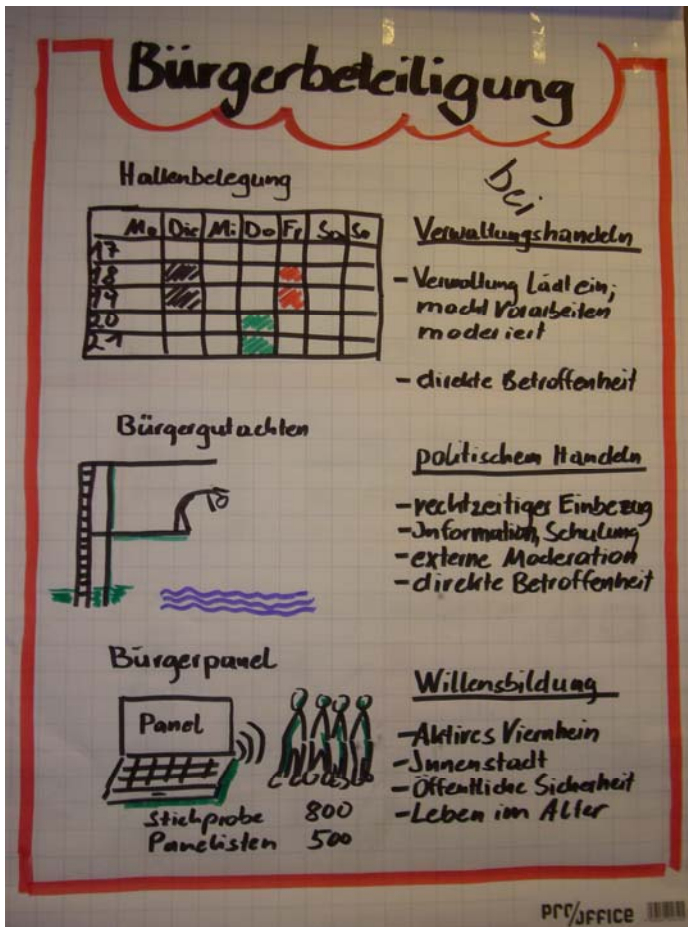 Bürgerbeteiligung
bei
Hallenbelegung
Mo Die Mi Do Fr Sa So
17
18
19
20
21
Verwaltungshandeln
- Verwaltung lädt ein;
macht Vorarbeiten
moderiert
- direkte Betroffenheit
Bürgergutachten
politischem Handeln
- rechtzeitiger Einbezug
- Information, Schulung
- externe Moderation
- direkte Betroffenheit
Bürgerpanel
Panel
Stichprobe 800
Panelisten 500
Willensbildung
- Aktives Viernheim
- Innenstadt
- Öffentliche Sicherheit
- Leben im Alter
pro/office